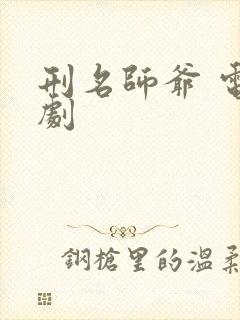 刑名師爺 電
劇
鋼槍里的溫柔